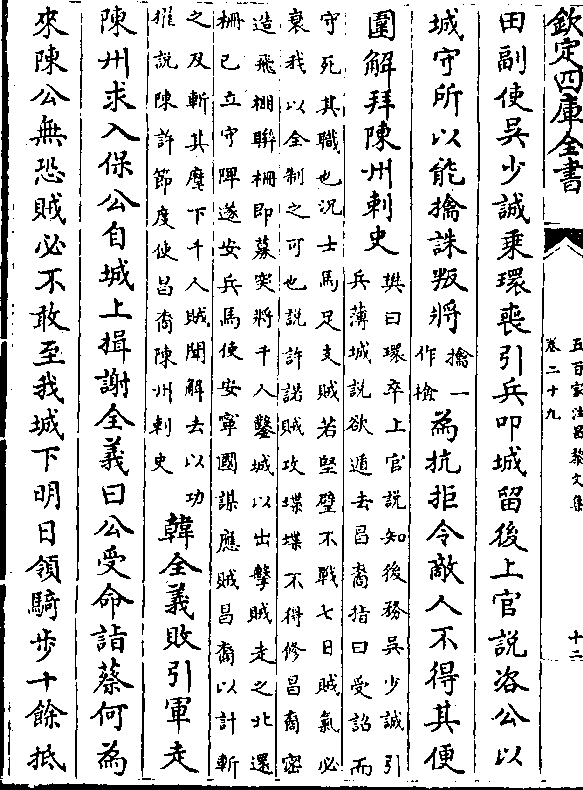 欽定四庫全書
五百家注昌黎文集
卷二十九
十二
田副使吳少誠乘環喪引兵叩城留後上官説咨公以
城守所以能擒誅叛將
擒一
作檎
為抗拒令敵人不得其便
圍解拜陳州刺史
樊曰環卒上官説知後務吳少誠引
兵薄城説欲遁去昌裔指曰受詔而
守死其職也況士馬足支賊若堅壁不戰七日賊氣必
衰我以全制之可也説許諾賊攻堞堞不得修昌裔密
造飛棚聯柵即募突將千人鑿城以出擊賊走之北還
柵已立守陴遂安兵馬使安寧國謀應賊昌裔以計斬
之及斬其麾下千人賊聞解去以功
推説陳許節度使昌裔陳州刺史
韓全義敗引軍走
陳州求入保公自城上揖謝全義曰公受命詣蔡何為
來陳公無恐賊必不敢至我城下明日領騎步十餘抵